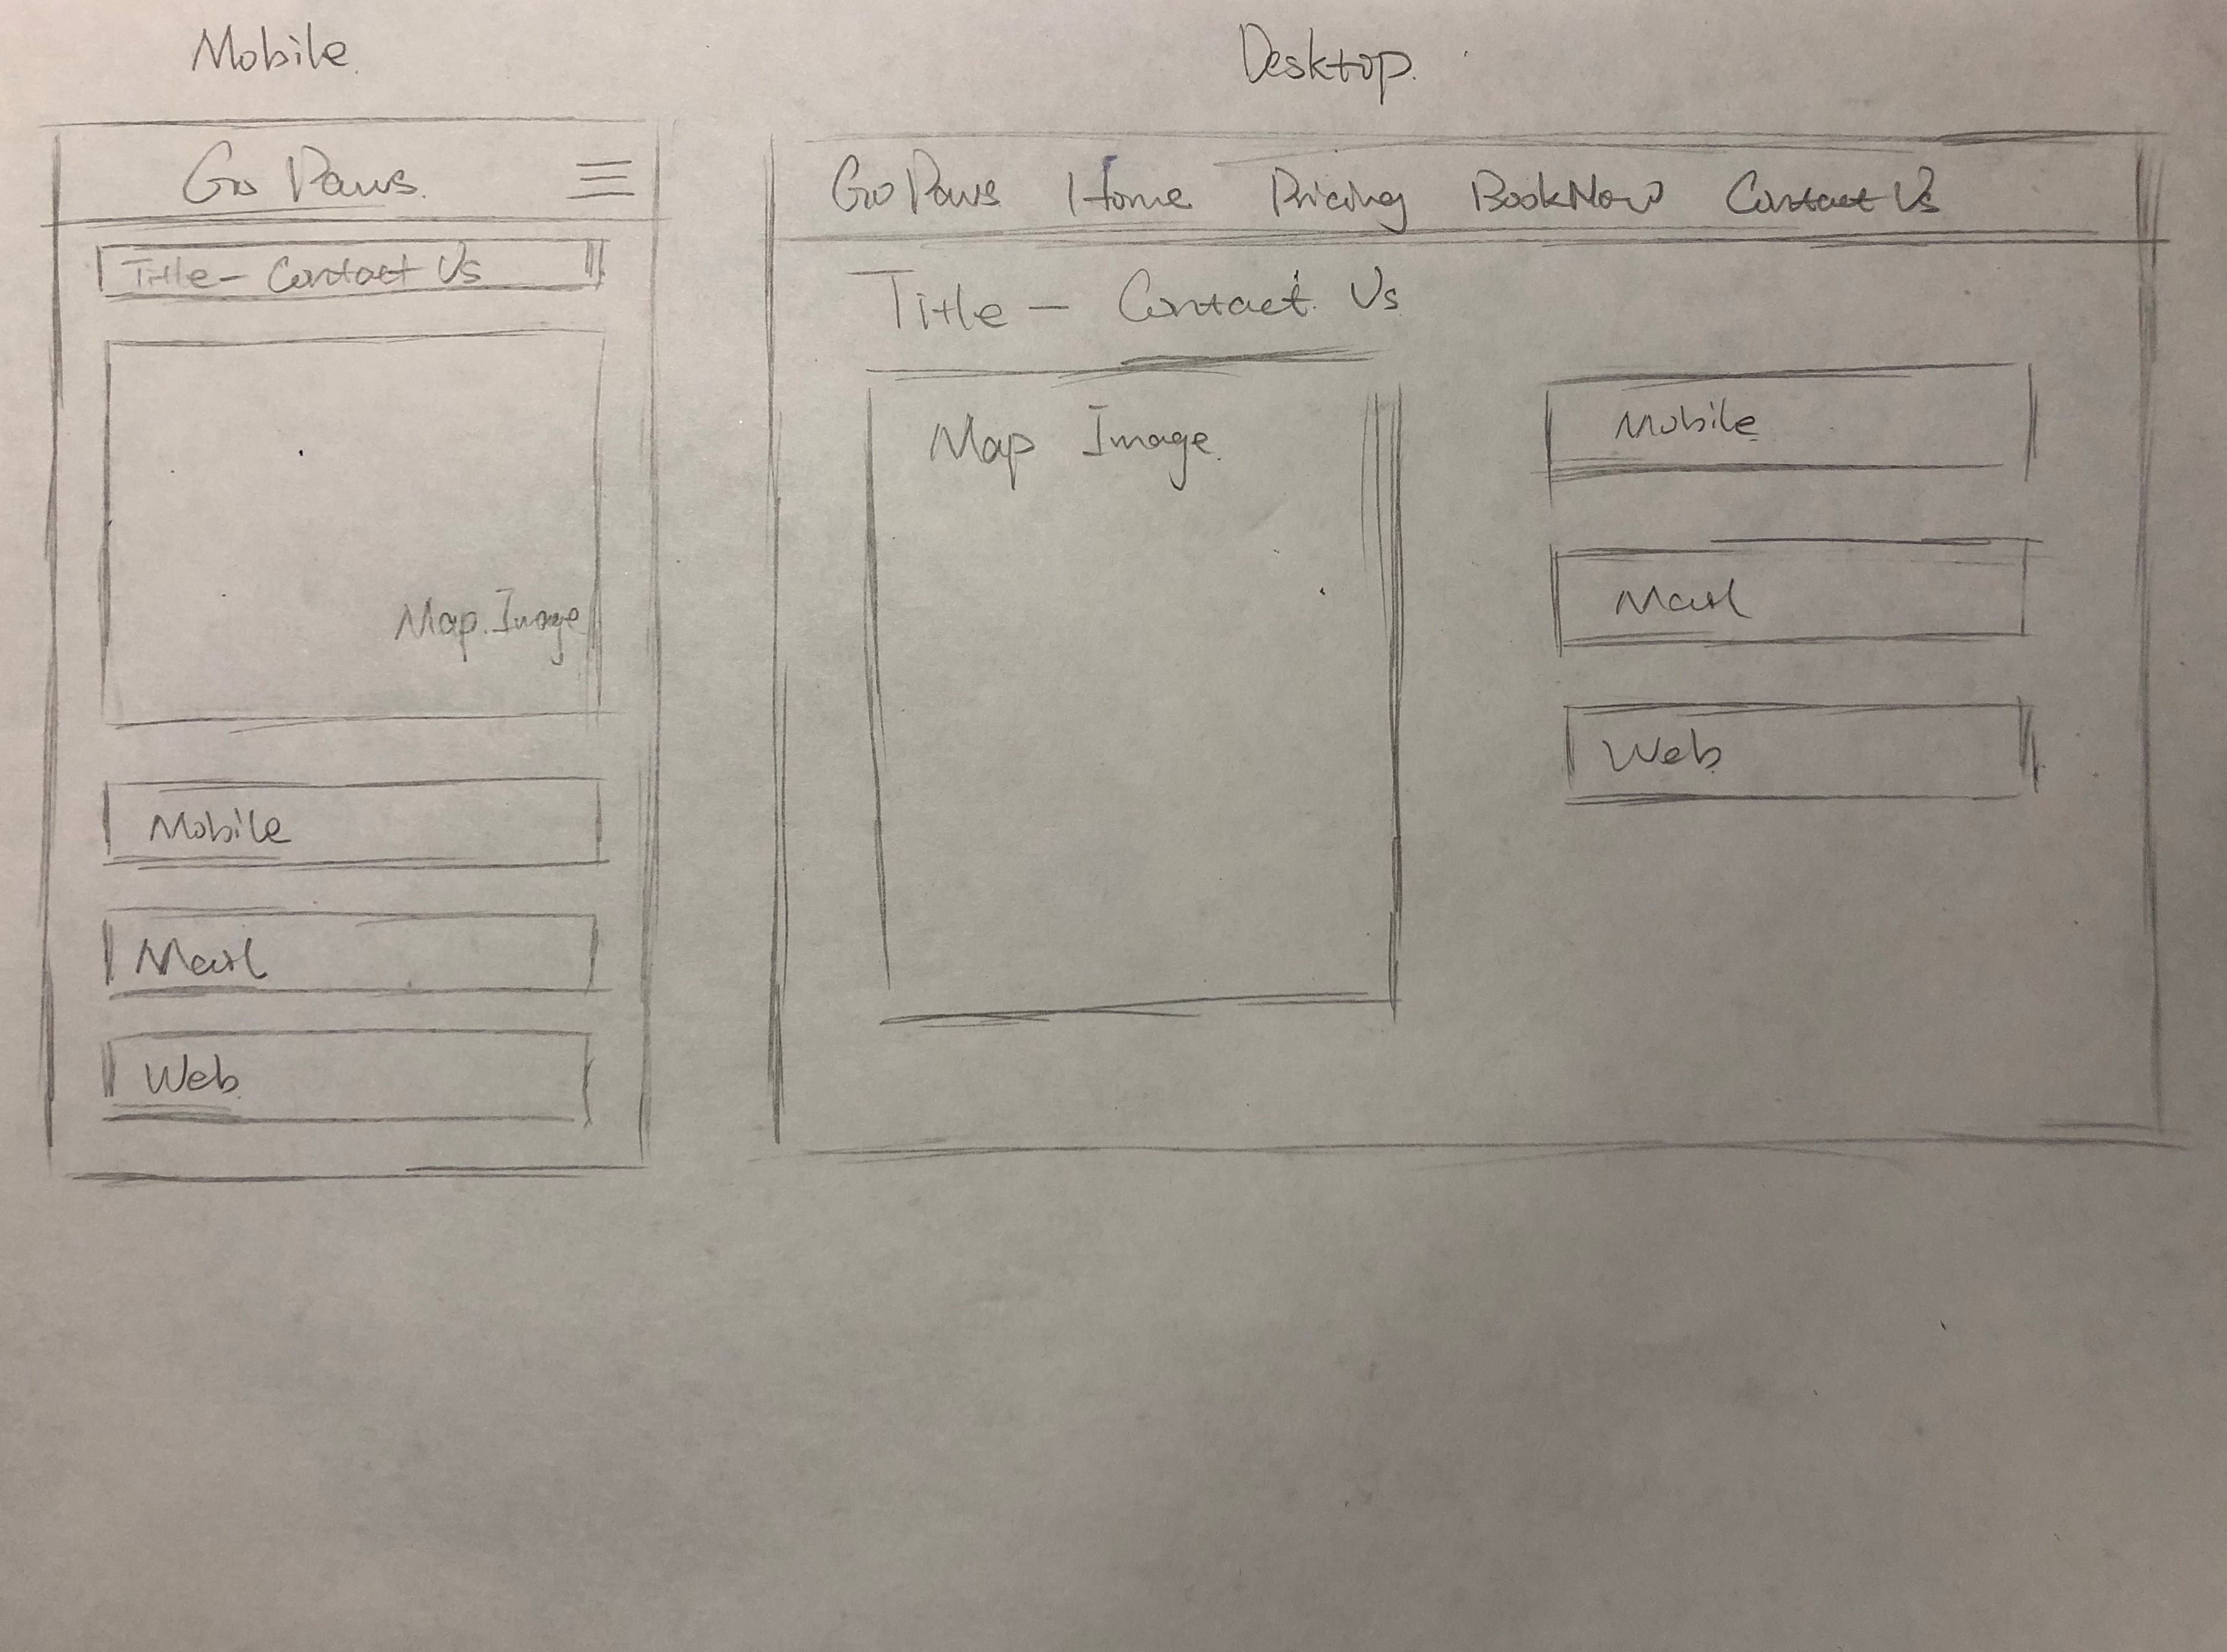 Mobile.
Go Paws.
Title - Contact Us
Map Image
Mobile
Mail
Web
Desktop.
Go Paws Home Pricing Book Now Contact Us
Title - Contact Us
Map Image.
Mobile
Mail
Web